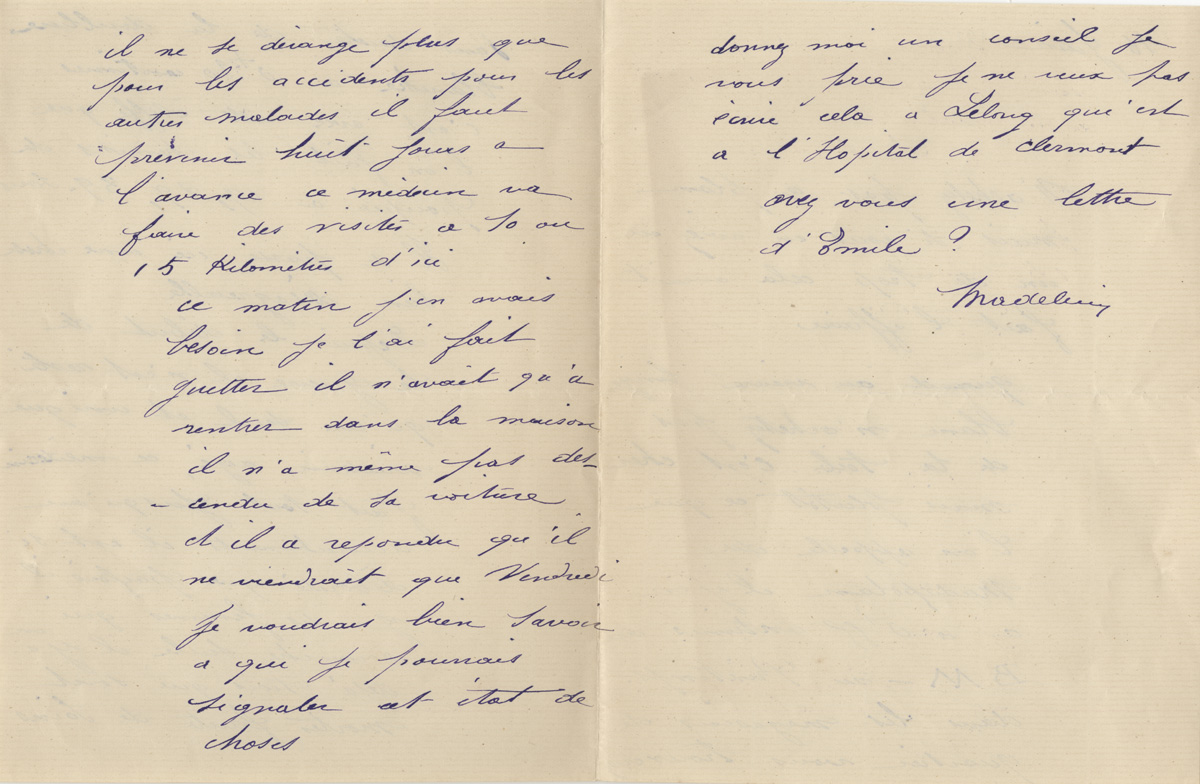 il ne se dérange plus que
pour les accidents pour les
autres malades il faut
prévenir huit jours a
l'avance ce médecin va
faire des visites a 10 ou
15 Kilomètres d'ici
ce matin j'en avais
besoin je l'ai fait
guetter il n'avait qu'a
rentrer dans la maison
il n'a même pas des-
-cendu de sa voiture
et il a repondu qu'il
ne viendrait que Vendredi
je voudrais bien savoir
a qui je pourrais
signaler cet état de
choses
donnez moi un conseil je
vous prie je ne veux pas
écrire cela a Lelong qui est
a l'Hopital de Clermont
avez vous une lettre
d'Emile ?
Madeleine